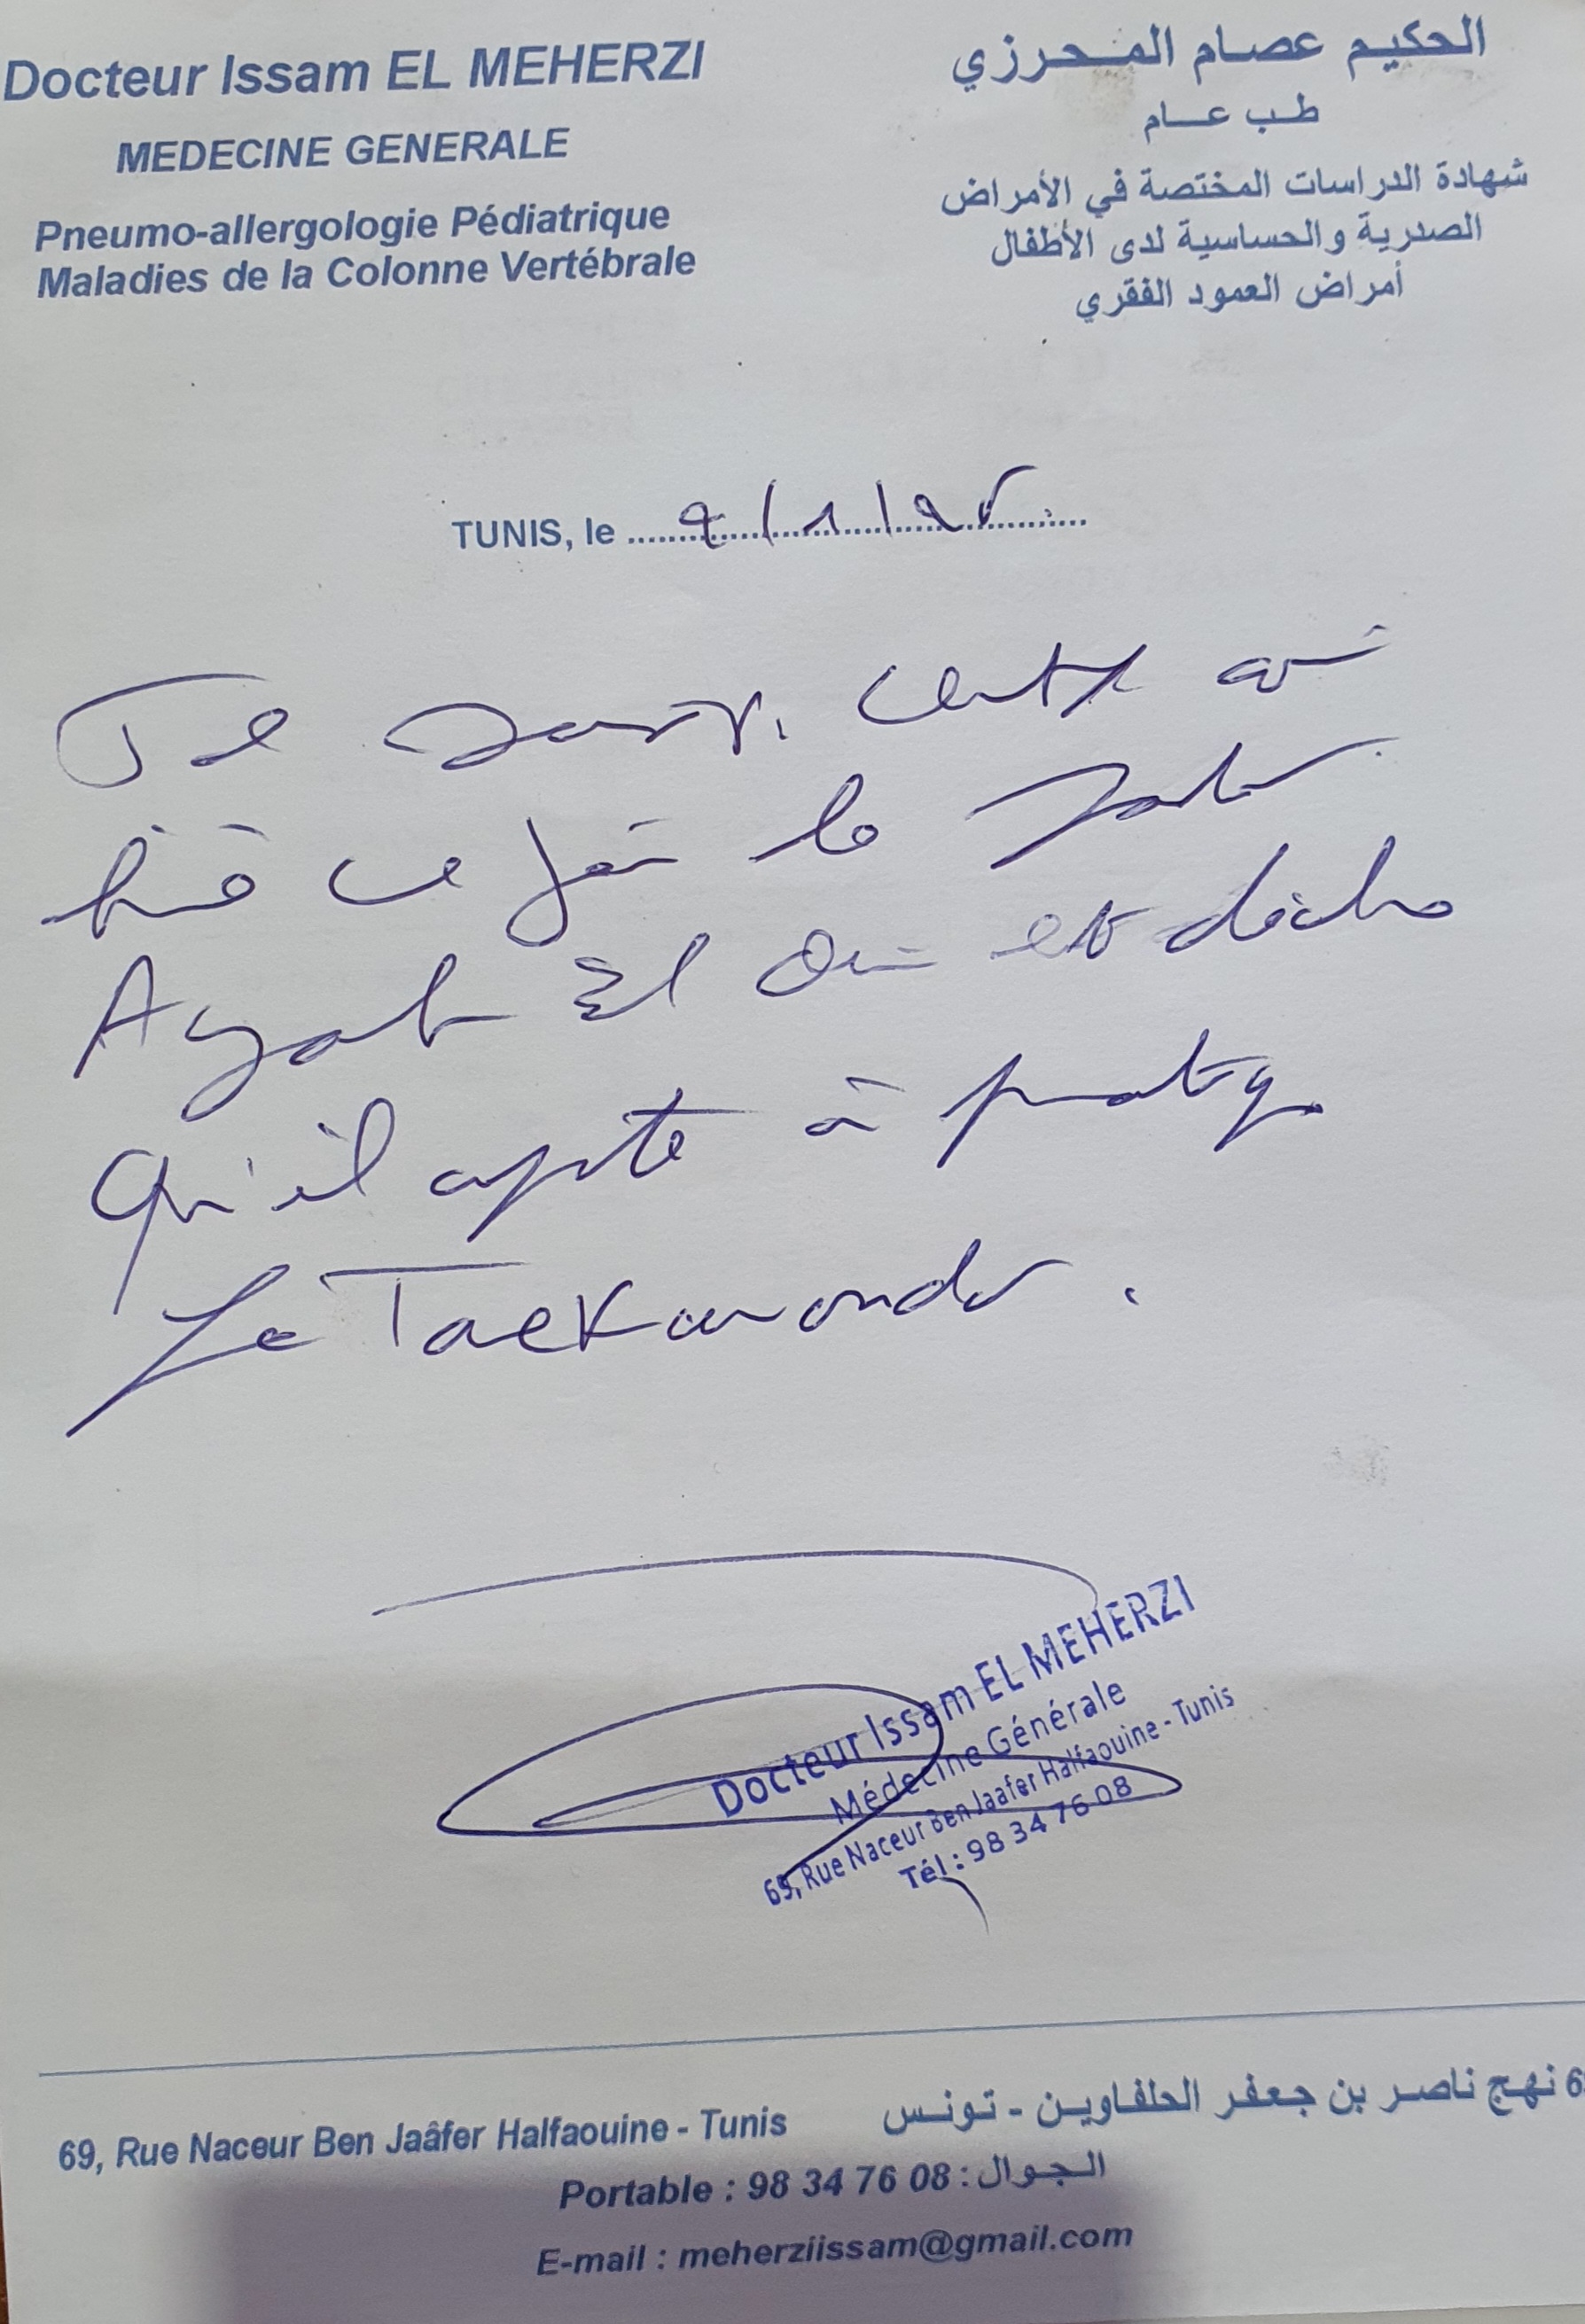 Docteur Issam EL MEHERZI
MEDECINE GENERALE
Pneumo-allergologie Pédiatrique
Maladies de la Colonne Vertébrale
الحكيم عصام المحرزي
طب عام
شهادة الدراسات المختصة في الأمراض
الصدرية والحساسية لدى الأطفال
أمراض العمود الفقري
TUNIS, le
Je certifie
ce jour le
Ayat El et
Qu'il apte à
Le Taekwondo.
Docteur Issam EL MEHERZI
Médecine Générale
69, Rue Naceur Ben Jaafer Halfaouine - Tunis
Tél : 98 34 76 08
69, Rue Naceur Ben Jaâfer Halfaouine - Tunis
نهج ناصر بن جعفر الحلفاوين - تونس
Portable : 98 34 76 08 : الجوال
E-mail : meherziissam@gmail.com